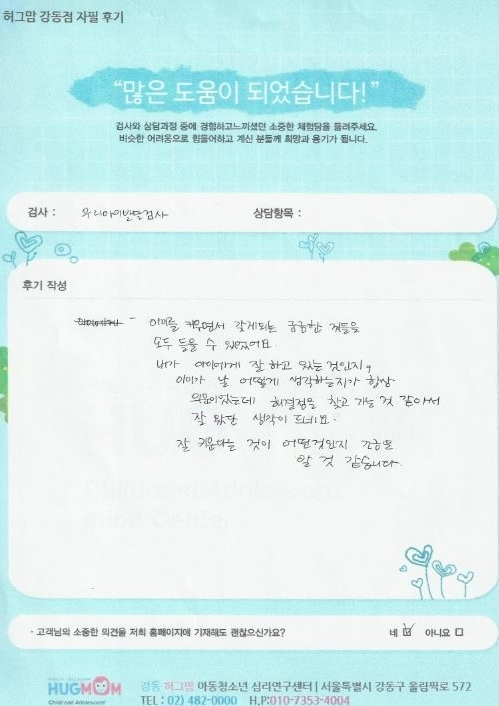 허그맘 강동점 자필 후기
“많은 도움이 되었습니다!”
검사와 상담과정 중에 경험하고느끼셨던 소중한 체험담을 들려주세요.
비슷한 어려움으로 힘들어하고 계신 분들께 희망과 용기가 됩니다.
검사 : 우리아이발달검사 상담항목 :
후기 작성
- 아이를 키우면서 갖게되는 궁금한 것들을
모두 들을 수 있었어요.
내가 아이에게 잘 하고 있는것인지,
아이가 날 어떻게 생각하는지가 항상
의문이었는데 해결점을 찾고 가는 것 같아서
잘 왔단 생각이 드네요.
잘 키운다는 것이 어떤것인지 조금은
알 것 같습니다.
· 고객님의 소중한 의견을 저희 홈페이지에 기재해도 괜찮으신가요? 네 ☑ 아니요 ☐
HUGMOM 강동 허그맘 아동청소년 심리연구센터 | 서울특별시 강동구 올림픽로 572
Child and Adolescent TEL : 02) 482-0000 H.P:010-7353-4004